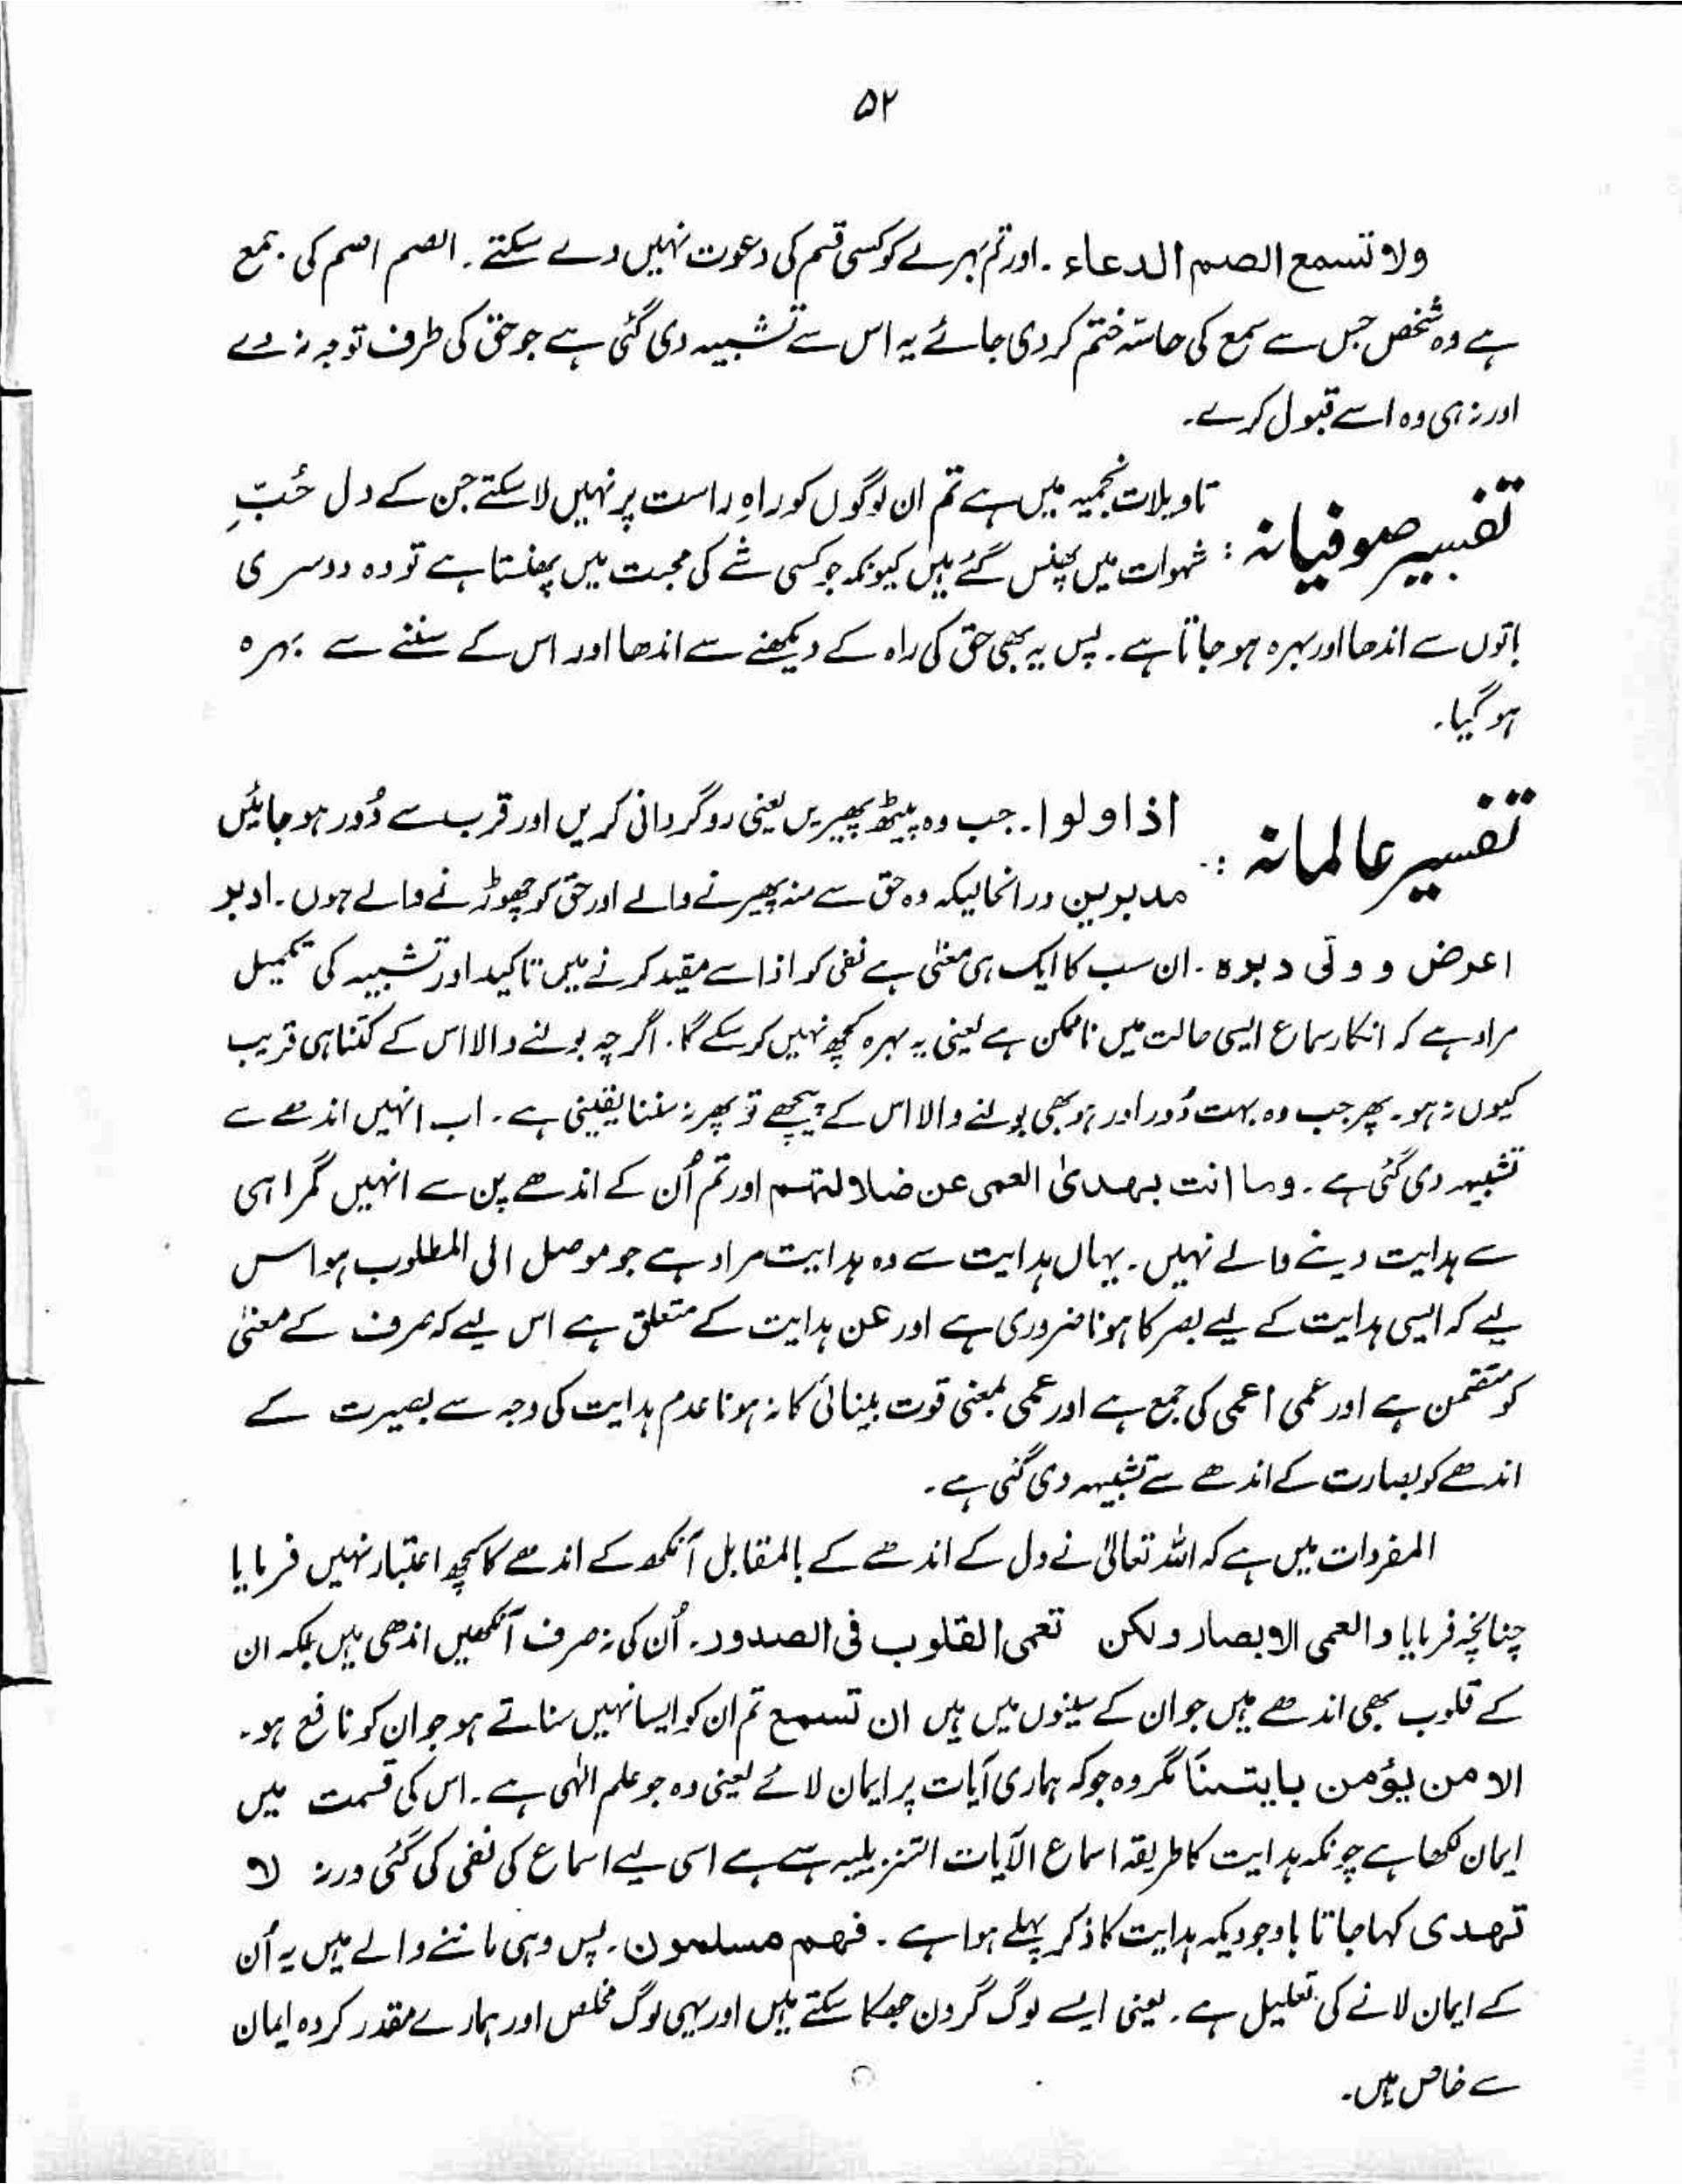 ۵۲
ولا تسمع الصم الدعاء ۔ اور تم بہرے کو کسی قسم کی دعوت نہیں دے سکتے ۔ الصم اصم کی جمع
ہے وہ شخص جس سے سمع کی حاسّہ ختم کر دی جائے یہ اس سے تشبیہ دی گئی ہے جو حق کی طرف توجہ نہ دے
اور نہ ہی وہ اسے قبول کرے۔
تفسیر صوفیانہ : تاویلات نجمیہ میں ہے تم ان لوگوں کو راہِ راست پر نہیں لا سکتے جن کے دل حُبِّ
شہوات میں پھنس گئے ہیں کیونکہ جو کسی شے کی محبت میں پھنستا ہے تو وہ دوسری
باتوں سے اندھا اور بہرہ ہو جاتا ہے ۔ پس یہ بھی حق کی راہ کے دیکھنے سے اندھا اور اس کے سننے سے بہرہ
ہو گیا ۔
تفسیر عالمانہ : اذا ولوا ۔ جب وہ پیٹھ پھیریں یعنی روگردانی کریں اور قرب سے دُور ہو جائیں
مدبرین درانحالیکہ وہ حق سے منہ پھیرنے والے اور حق کو چھوڑنے والے ہوں ۔ ادبر
اعرض و ولّی دبرہ ۔ ان سب کا ایک ہی معنیٰ ہے نفی کو اذا سے مقید کرنے میں تاکید اور تشبیہ کی تکمیل
مراد ہے کہ انکار سماع ایسی حالت میں ناممکن ہے یعنی یہ بہرہ کچھ نہیں کر سکے گا ۔ اگرچہ بولنے والا اس کے کتنا ہی قریب
کیوں نہ ہو ۔ پھر جب وہ بہت دُور اور ہو بھی بولنے والا اس کے پیچھے تو پھر نہ سننا یقینی ہے ۔ اب انہیں اندھے سے
تشبیہ دی گئی ہے ۔ وما انت بھدیٰ العمی عن ضلالتھم اور تم اُن کے اندھے پن سے انہیں گمراہی
سے ہدایت دینے والے نہیں ۔ یہاں ہدایت سے وہ ہدایت مراد ہے جو موصل الی المطلوب ہو اس
لیے کہ ایسی ہدایت کے لیے بصر کا ہونا ضروری ہے اور عن ہدایت کے متعلق ہے اس لیے کہ صرف کے معنیٰ
کو متضمن ہے اور عمی اعمی کی جمع ہے اور عمی بمعنی قوت بینائی کا نہ ہونا عدم ہدایت کی وجہ سے بصیرت کے
اندھے کو بصارت کے اندھے سے تشبیہہ دی گئی ہے ۔
المفردات میں ہے کہ اللہ تعالیٰ نے دل کے اندھے کے بالمقابل آنکھ کے اندھے کا کچھ اعتبار نہیں فرمایا
چنانچہ فرمایا و العمی الابصار ولکن تعمی القلوب فی الصدور ۔ اُن کی نہ صرف آنکھیں اندھی ہیں بلکہ ان
کے قلوب بھی اندھے ہیں جو ان کے سینوں میں ہیں ان تسمع تم ان کو ایسا نہیں سناتے ہو جو ان کو نافع ہو ۔
الا من یؤمن بایتنا مگر وہ جو کہ ہماری آیات پر ایمان لائے یعنی وہ جو علم الٰہی ہے ۔ اس کی قسمت میں
ایمان لکھا ہے چونکہ ہدایت کا طریقہ اسماع الآیات التنزیلیہ سے ہے اسی لیے اسماع کی نفی کی گئی ورنہ لا
تھدی کہا جاتا باوجودیکہ ہدایت کا ذکر پہلے ہوا ہے ۔ فھم مسلمون ۔ پس وہی ماننے والے ہیں یہ اُن
کے ایمان لانے کی تعلیل ہے ۔ یعنی ایسے لوگ گردن جھکا سکتے ہیں اور یہی لوگ مخلص اور ہمارے مقدر کردہ ایمان
سے خاص ہیں ۔